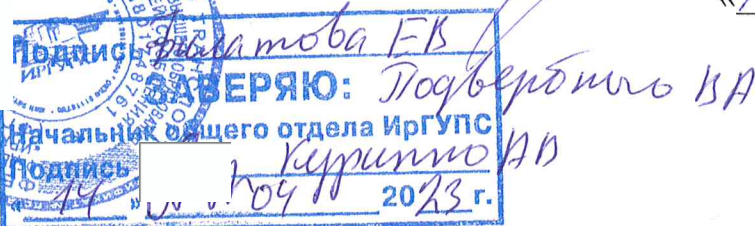 «
Подпись Филатова ЕВ
ЗАВЕРЯЮ: Подвербного ВА
Начальник общего отдела ИрГУПС
Подпись Куриппо АВ
« 14 » 04 2023 г.